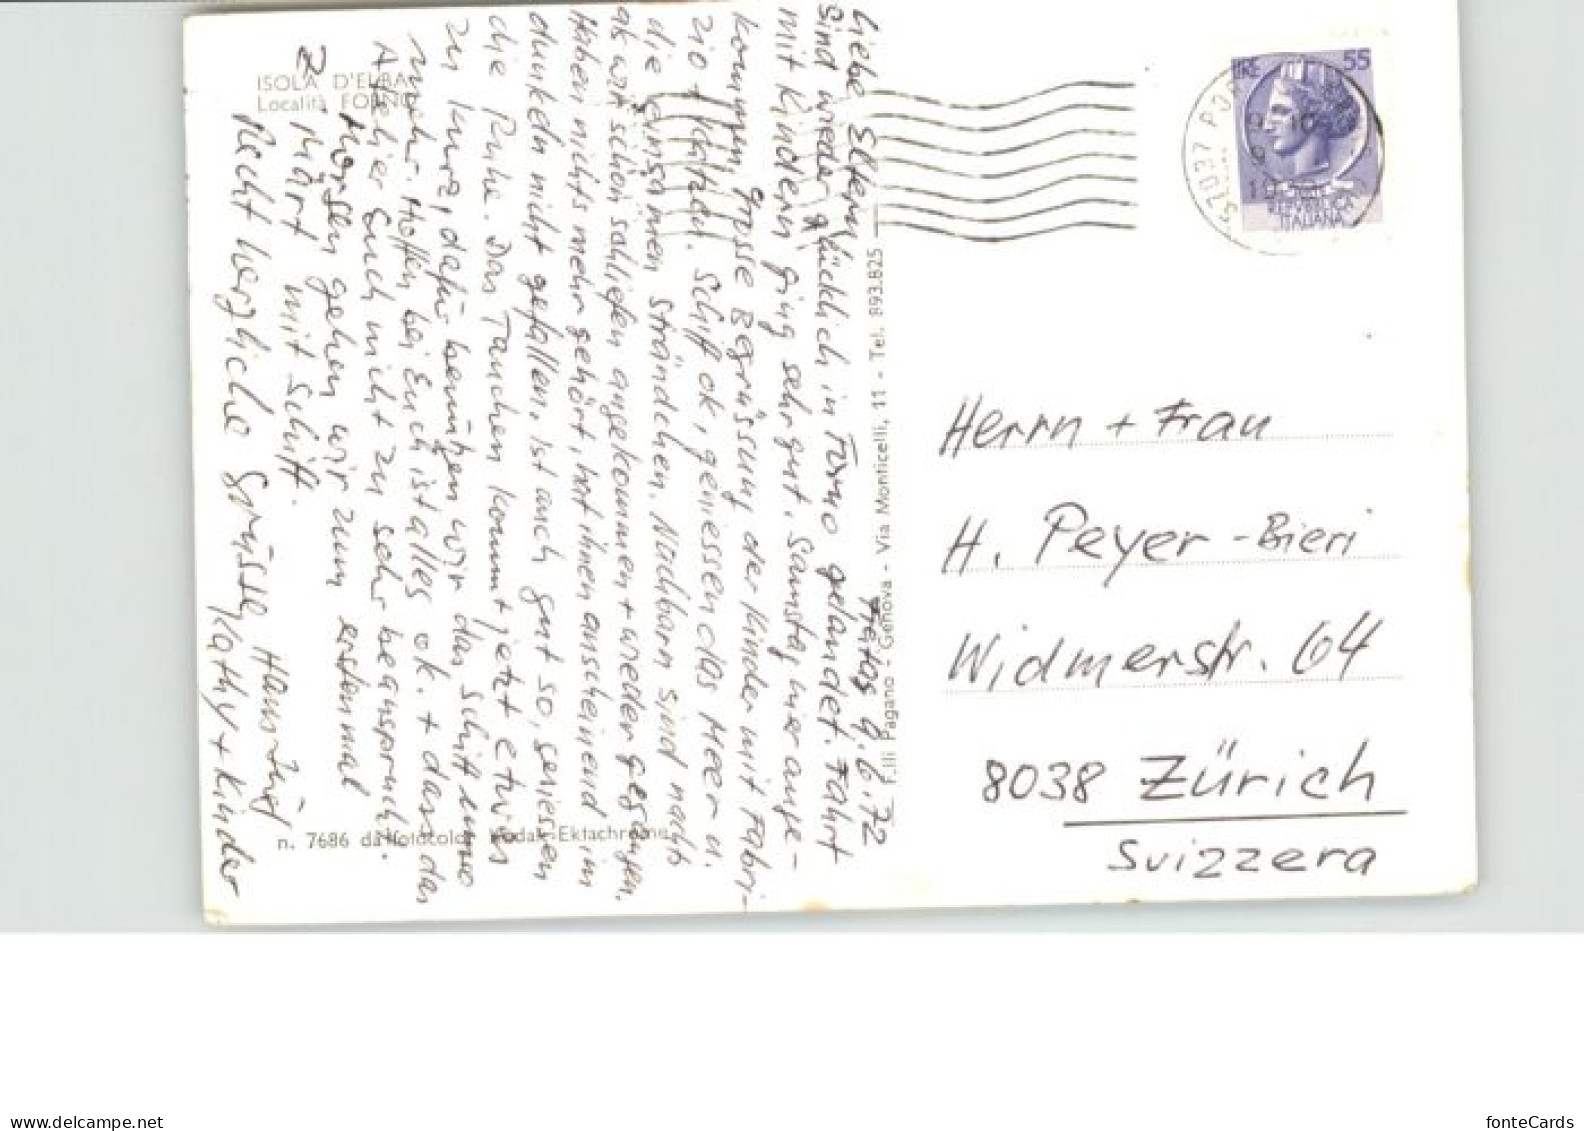 ISOLA D'ELBA
Località FORNO
Freitag 9.6.72
Liebe Eltern
Sind wieder glücklich in Forno gelandet. Fahrt
mit Kindern ging sehr gut. Samstag hier ange-
kommen grosse Begrüssung der Kinder mit Fabri-
zio + Katzen. Schiff ok, geniessen das Meer u.
die einsamen Strändchen. Nachbarn sind nachts
als wir schon schliefen angekommen + wieder gegangen.
Haben nichts mehr gehört, hat ihnen anscheinend im
dunkeln nicht gefallen, ist auch gut so, geniessen
die Ruhe. Das Tauchen kommt jetzt etwas
zu kurz, dafür benützen wir das Schiff umso
mehr. Hoffen bei Euch ist alles ok. + dass das
Atelier Euch nicht zu sehr beansprucht.
Morgen gehen wir zum erstenmal
z Märt mit Schiff.
Recht herzliche Grüsse Hansruedi
Kathy + Kinder
n. 7686 da fotocolor Kodak Ektachrome
F.lli Pagano - Genova - Via Monticelli, 11 - Tel. 893.825
LIRE 55
REPVBBLICA
ITALIANA
57037 PO
Herrn + Frau
H. Peyer-Bieri
Widmerstr. 64
8038 Zürich
Svizzera
www.delcampe.net
fonteCards